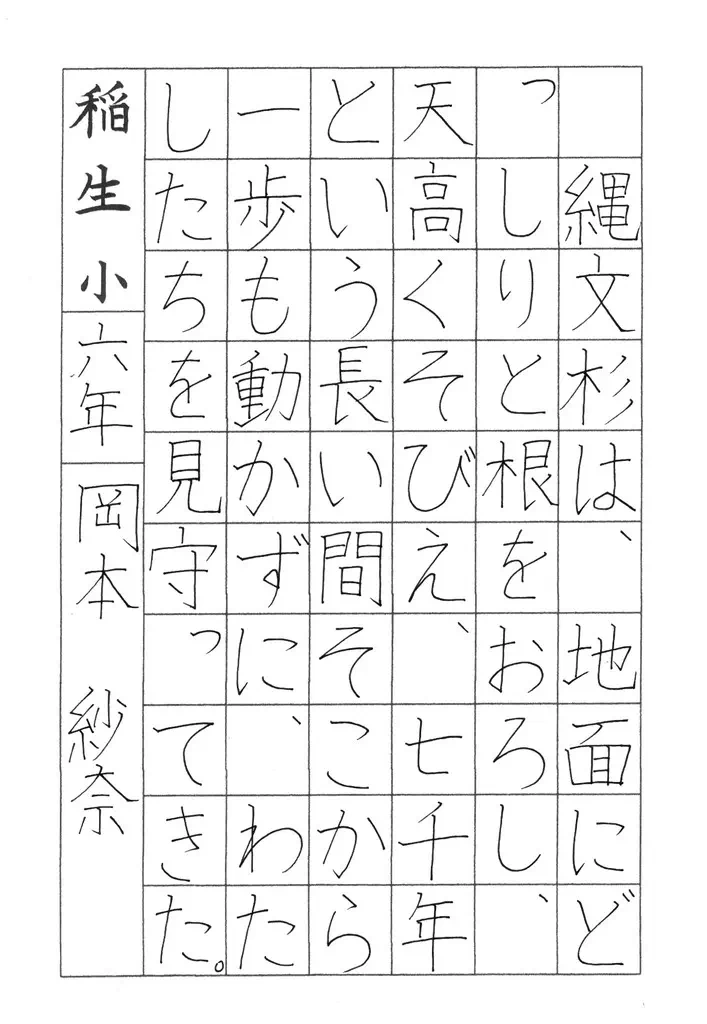 縄文杉は、地面にど
っしりと根をおろし、
天高くそびえ、七千年
という長い間そこから
一歩も動かずに、わた
したちを見守ってきた。
稲生小 六年 岡本 紗奈